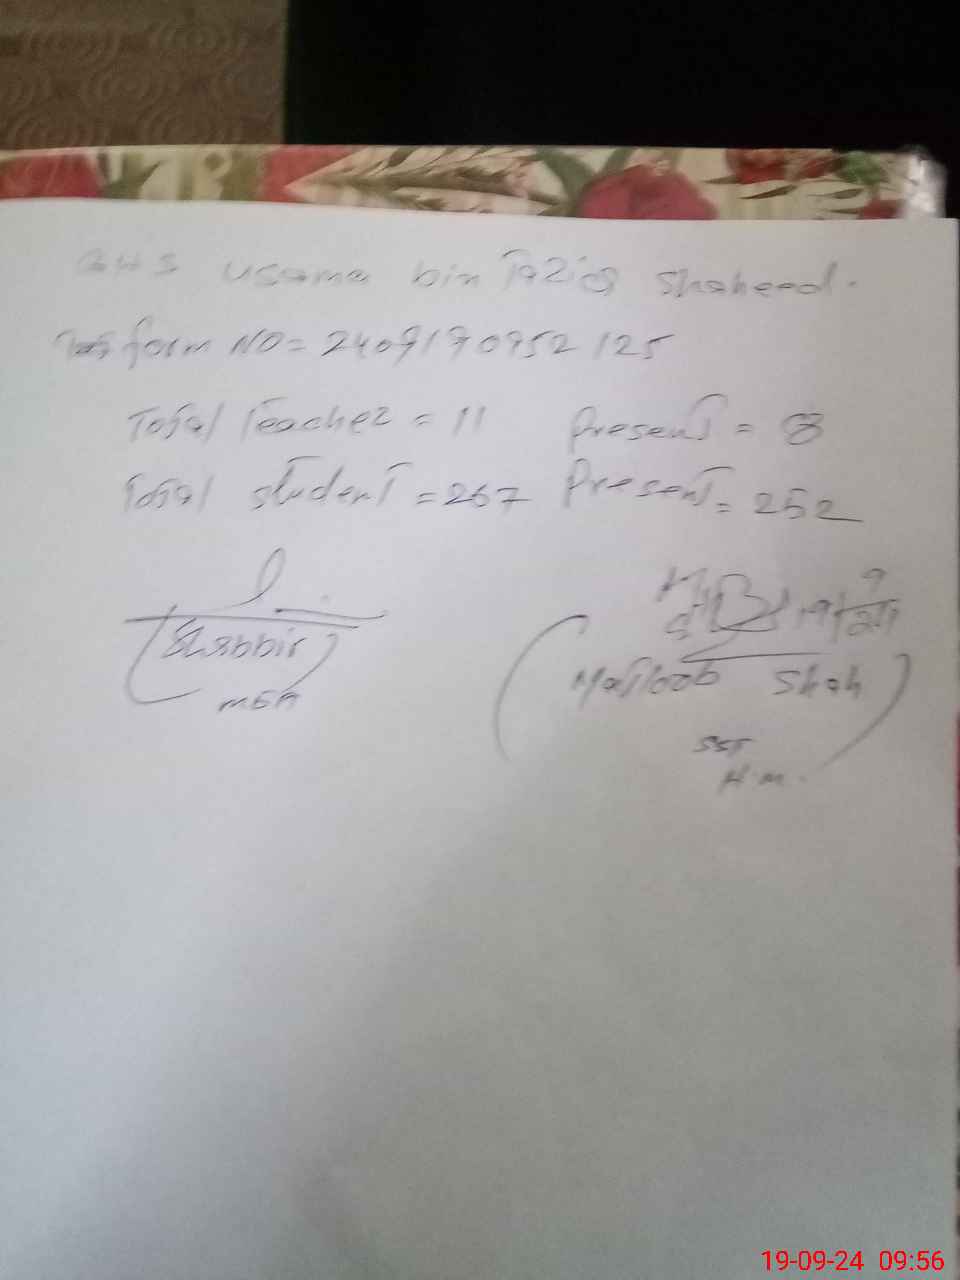 GHS Usama bin Tariq Shaheed.
form NO = 2409170952125
Total Teacher = 11 Present = 8
Total student = 267 Present = 252
(Shabbir)
MEA
19/9/24
(Matloob Shah)
SST
H.M.
19-09-24 09:56